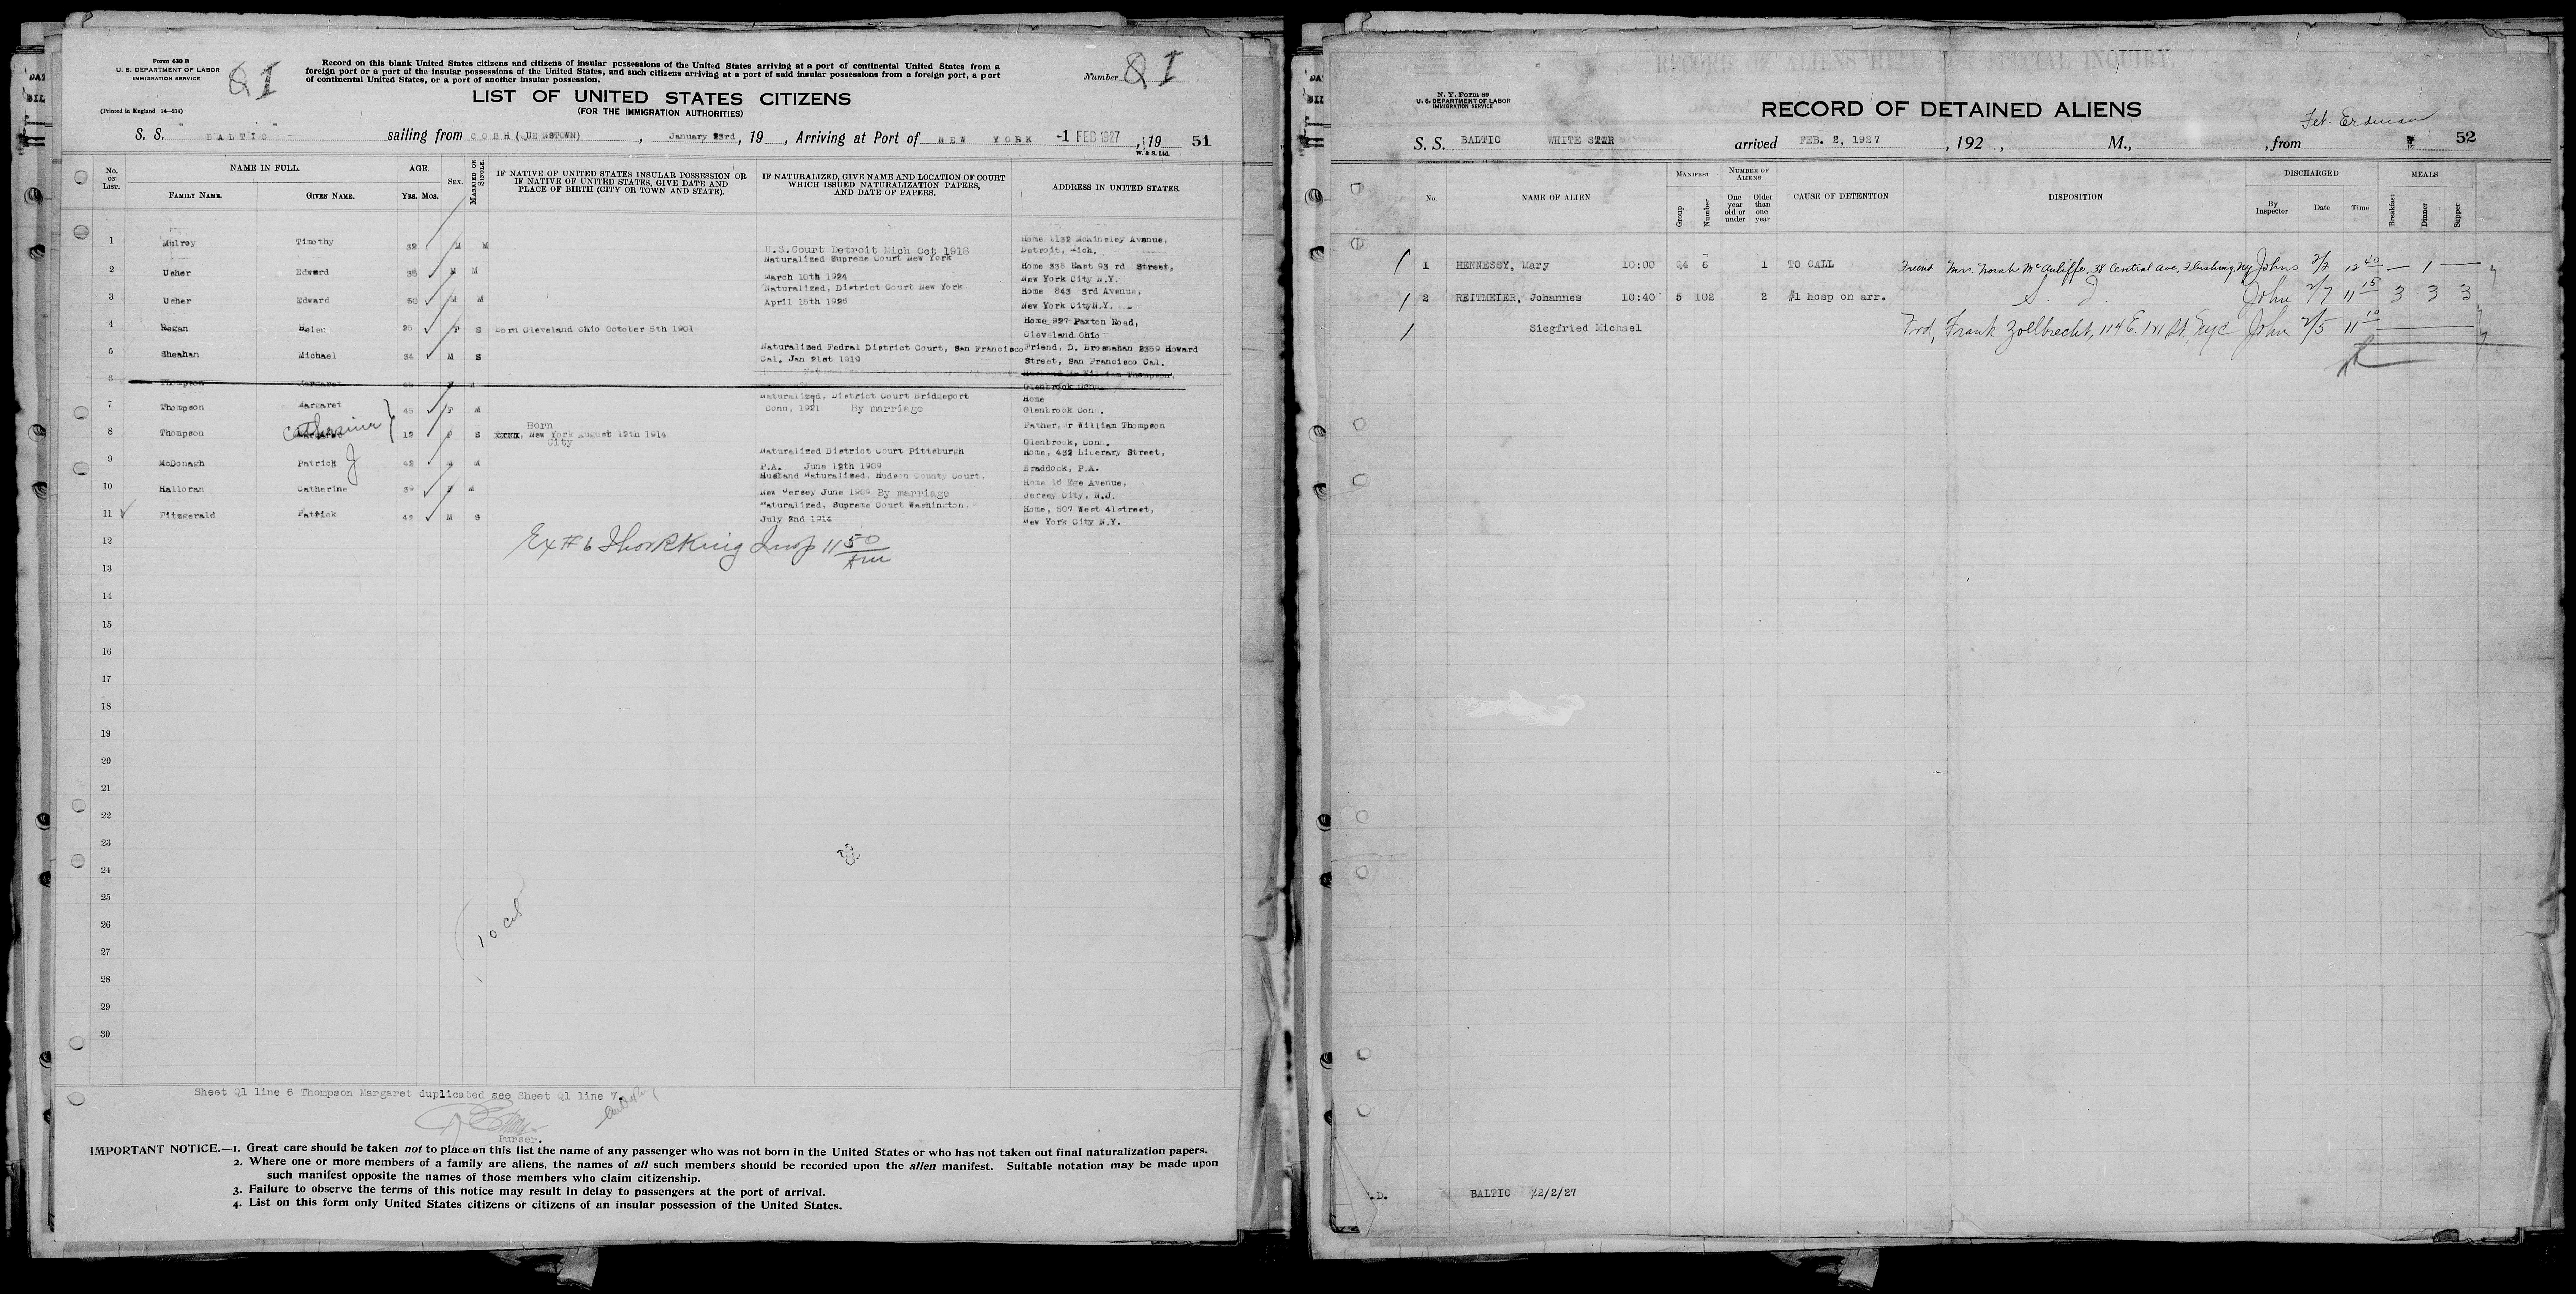 Form 630 B
U. S. DEPARTMENT OF LABOR
IMMIGRATION SERVICE
(Printed in England 14—214)
Q I
Record on this blank United States citizens and citizens of insular possessions of the United States arriving at a port of continental United States from a
foreign port or a port of the insular possessions of the United States, and such citizens arriving at a port of said insular possessions from a foreign port, a port
of continental United States, or a port of another insular possession.
Number Q I
LIST OF UNITED STATES CITIZENS
(FOR THE IMMIGRATION AUTHORITIES)
S. S. BALTIC sailing from COBH (QUEENSTOWN), January 23rd, 19 , Arriving at Port of NEW YORK -1 FEB 1927, 19 51
W. & S. Ltd.
No. ON LIST. NAME IN FULL. AGE. SEX. MARRIED OR SINGLE. IF NATIVE OF UNITED STATES INSULAR POSSESSION OR IF NATIVE OF UNITED STATES, GIVE DATE AND PLACE OF BIRTH (CITY OR TOWN AND STATE). IF NATURALIZED, GIVE NAME AND LOCATION OF COURT WHICH ISSUED NATURALIZATION PAPERS, AND DATE OF PAPERS. ADDRESS IN UNITED STATES.
FAMILY NAME. GIVEN NAME. YRS. MOS.
1 Mulroy Timothy 32 M M U.S.Court Detroit Mich Oct 1918 Home 1132 McKinsley Avenue,
Detroit, Mich.
2 Usher Edward 38 M M Naturalized Supreme Court New York
March 10th 1924 Home 338 East 93 rd Street,
New York City N.Y.
3 Usher Edward 50 M M Naturalized, District Court New York
April 15th 1926 Home 843 3rd Avenue,
New York CityN.Y.
4 Regan Helen 25 F S Born Cleveland Ohio October 5th 1901 Home 927 Paxton Road,
Cleveland Ohio
5 Sheahan Michael 34 M S Naturalized Fedral District Court, San Francisco
Cal. Jan 21st 1919 Friend, D. Brosnahan 2359 Howard
Street, San Francisco Cal.
6 Thompson Margaret Husband Mr William Thompson,
Glenbrook Conn.
7 Thompson Margaret 45 F M Naturalized, District Court Bridgeport
Conn, 1921 By marriage Home
Glenbrook Conn.
8 Thompson Catherine 12 F S Born New York August 12th 1914
City Father, Mr William Thompson
Glenbrook, Conn.
9 McDonagh Patrick J 42 M M Naturalized District Court Pittsburgh
P.A. June 12th 1909 Home, 432 Literary Street,
Braddock, P.A.
10 Halloran Catherine 39 F M Husband Naturalized, Hudson County Court,
New Jersey June 1909 By marriage Home 16 Ege Avenue,
Jersey City, N.J.
11 Fitzgerald Patrick 42 M S Naturalized, Supreme Court Washington,
July 2nd 1914 Home, 507 West 41street,
New York City N.Y.
12
Ex # 6 King Insp 11 50 Am
13
14
15
16
17
18
19
20
21
22
23
24
25
26
27
28
29
30
Sheet Q1 line 6 Thompson Margaret duplicated see Sheet Q1 line 7.
Purser.
IMPORTANT NOTICE.—1. Great care should be taken not to place on this list the name of any passenger who was not born in the United States or who has not taken out final naturalization papers.
2. Where one or more members of a family are aliens, the names of all such members should be recorded upon the alien manifest. Suitable notation may be made upon
such manifest opposite the names of those members who claim citizenship.
3. Failure to observe the terms of this notice may result in delay to passengers at the port of arrival.
4. List on this form only United States citizens or citizens of an insular possession of the United States.
RECORD OF ALIENS HELD FOR SPECIAL INQUIRY.
N. Y. Form 89
U. S. DEPARTMENT OF LABOR
IMMIGRATION SERVICE
RECORD OF DETAINED ALIENS
Erdman
S. S. BALTIC WHITE STAR arrived FEB. 2, 1927, 192 , M., , from 52
No. NAME OF ALIEN MANIFEST NUMBER OF ALIENS CAUSE OF DETENTION DISPOSITION DISCHARGED MEALS
Group Number One year old or under Older than one year By Inspector Date Time Breakfast Dinner Supper
1 HENNESSY, Mary 10:00 Q4 6 1 TO CALL Friend Mrs. Norah McAuliffe, 38 Central Ave, Flushing, NY Johns 2/2 12 40 — 1 —
2 REITMEIER, Johannes 10:40 5 102 2 #1 hosp on arr. S. I. John 2/7 11 15 3 3 3
Siegfried Michael Frd, Frank Zoelbrecht, 114 E. 1st St, NYC John 2/5 11 10
BALTIC 2/2/27